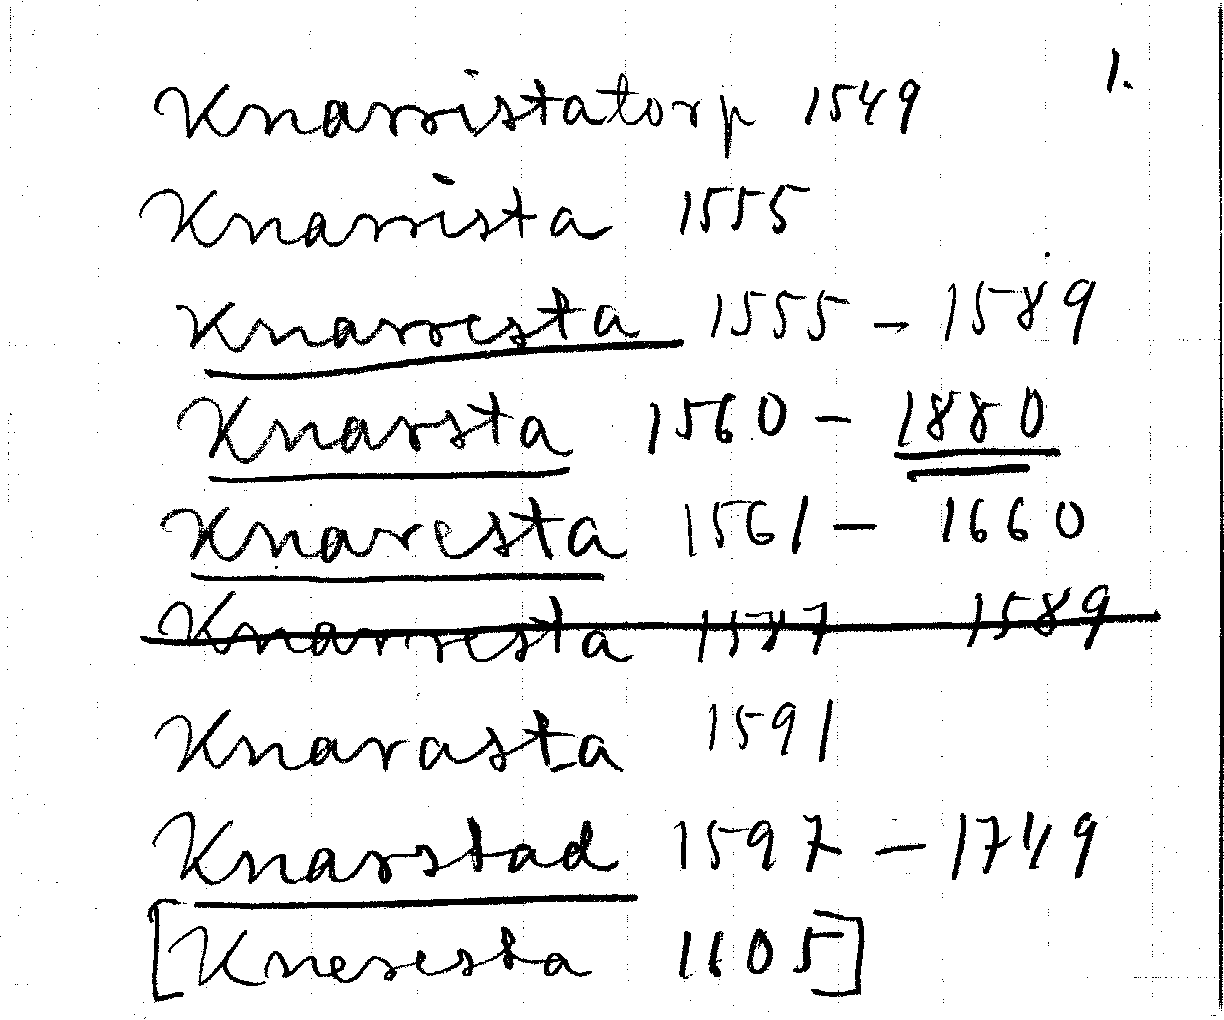 1.
Knarristatorp 1549
Knarrista 1555
Knarresta 1555 - 1589
Knarsta 1560 - 1880
Knaresta 1561 - 1660
Knarresta 1587 1589
Knarasta 1591
Knarstad 1597 - 1749
[Kneresta 1605]